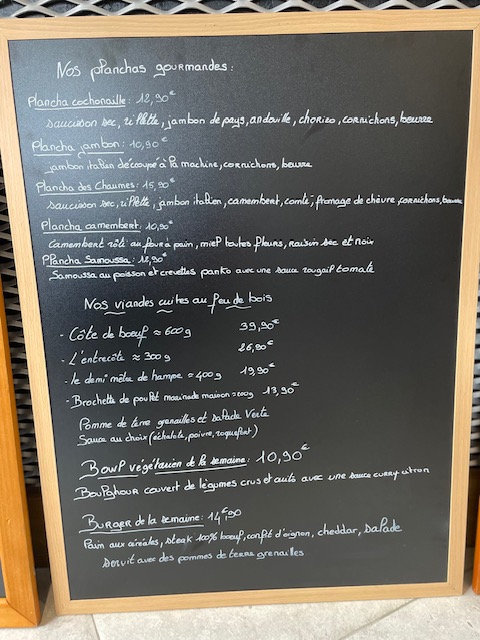 Nos planchas gourmandes:
Plancha cochonaille: 12,90€
saucisson sec, rillette, jambon de pays, andouille, chorizo, cornichons, beurre
Plancha jambon: 10,90€
jambon italien découpé à la machine, cornichons, beurre
Plancha des Chaumes: 15,90€
saucisson sec, rillette, jambon italien, camembert, comté, fromage de chèvre, cornichons, beurre
Plancha camembert: 10,90€
Camembert rôti au four à pain, miel toutes fleurs, raisin sec et noix
Plancha Samoussa: 12,90€
Samoussa au poisson et crevettes panko avec une sauce rougail tomate
Nos viandes cuites au feu de bois
- Côte de boeuf ≈ 600g 39,90€
- L'entrecôte ≈ 300g 26,90€
- le demi mètre de hampe ≈ 400g 19,90€
- Brochette de poulet marinade maison ≈ 13,90€
Pomme de terre grenailles et salade verte
Sauce au choix (échalote, poivre, roquefort)
Bowl végétarien de la semaine: 10,90€
Boulghour couvert de légumes crus et cuits avec une sauce curry citron
Burger de la semaine: 14,90€
Pain aux céréales, steak 100% boeuf, confit d'oignon, cheddar, salade
servit avec des pommes de terre grenailles